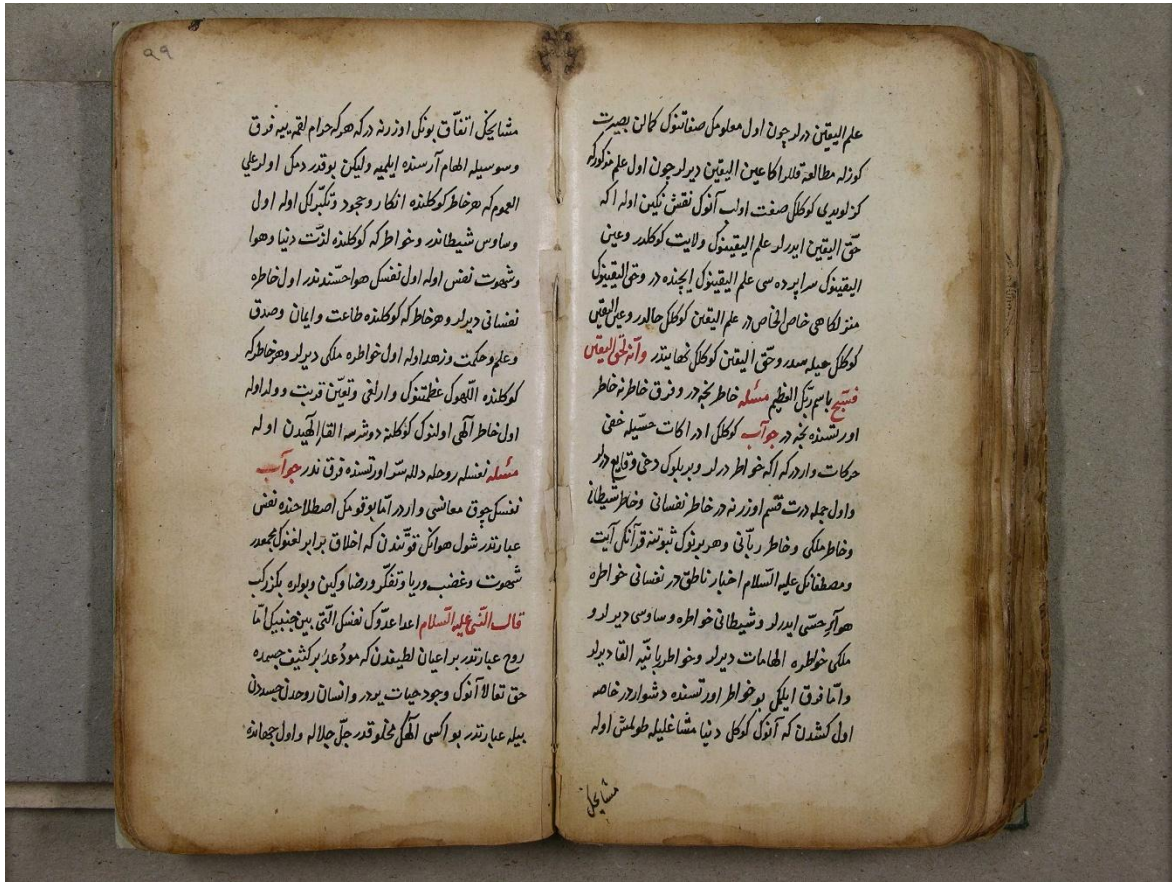 علم اليقين ديرلر چون اول معلومكل صفاتنوك كمالن بصيرت
كوزله مطالعه قللر اكا عين اليقين ديرلر چون اول علم مذكوركه
كزلويدى كوكلكل صفت اولب آنوك نقش نكين اوله اكه
حقّ اليقين ايدرلر علم اليقينوك ولايت كوكلدر وعين
اليقينوك سراپرده سى علم اليقينوك ايچنده در وحق اليقينوك
منزلكاهى خاص الخاص در علم اليقين كوكلكل حالدر وعين اليقين
كوكلكل وحقّ اليقين كوكلكل نهايتدر وانّه لحق اليقين
فسبّح باسم ربّك العظيم مسئله خاطر نجه در وفرق خاطر نه خاطر
اورتسنده نجه در جوآب كوكلكل ادراكات حسّيله خفى
حركات واردركه اكه خواطر درلر وبربلوك دخى وقايع درلر
واول جمله درت قسم اوزرنه در خاطر نفسانى وخاطر شيطانى
وخاطر ملكى وخاطر ربّانى وهر برنوك ثبوتنه قرآنكل آيت
ومصطفانكل عليه السّلام اخبار ناطق در نفسانى خواطره
هوآجس حسّى ايدرلر وشيطانى خواطره وساوسى ديرلر و
ملكى خواطره الهامات ديرلر وخواطر ربانيّه القا ديرلر
وامّا فرق ايلمكل بو خواطر اورتسنده دشواردر خاصه
اول كشدن كه آنوك كوكل دنيا مشاغليله طولمش اوله
مشايخكل
٩٩
مشايخكل اتفّاق بونكل اوزرنه دركه هركه حرام لقمه ييه فرق
وسوسيله الهام آرسنده ايلميه وليكن بوقدر دمكل اولر على
العموم كه هر خاطر كوكلنده انكار وجحود وتكبّر كل اوله اول
وساوس شيطاندر وخواطر كه كوكلنده لذّت دنيا وهوا
وشهوت نفس اوله اول نفسكل هواجسندندر اول خاطره
نفسانى ديرلر وهر خاطر كه كوكلنده طاعت وايمان وصدق
وعلم وحكمت وزهد اوله اول خواطره ملكى ديرلر وهر خاطر كه
كوكلنده اللّهوك عظمتنوك وارلغى وتعيّن قربت وولد اوله
اول خاطر آلهى اولنوك كوكلنه دوشرسه القاء الٓهيدن اوله
مسئله نفسله روحله دلله سرّ اورتسنده فرق ندر جوآب
نفسكل چوق معانسى واردر امّا بو قومكل اصطلاحنده نفس
عبارتدر شول هوانكل قوّتندن كه اخلاق برابرلغنوك مجمعدر
شهوت وغضب وريا وتفكّر ورضا وكين وبولره بكزر كب
قال النّبى عليه السّلام اعدا عدّوك نفسكل الّتى بين جنبيكل امّا
روح عبارتدر بر اعيان لطيفدن كه مودعدر بر كثيف جسمده
حق تعالا آنوك وجود حيات يردر وانسان روحدن جسددن
بيله عبارتدر بو اكسى الٓهكل مخلوقدر جلّ جلاله واول جهانده